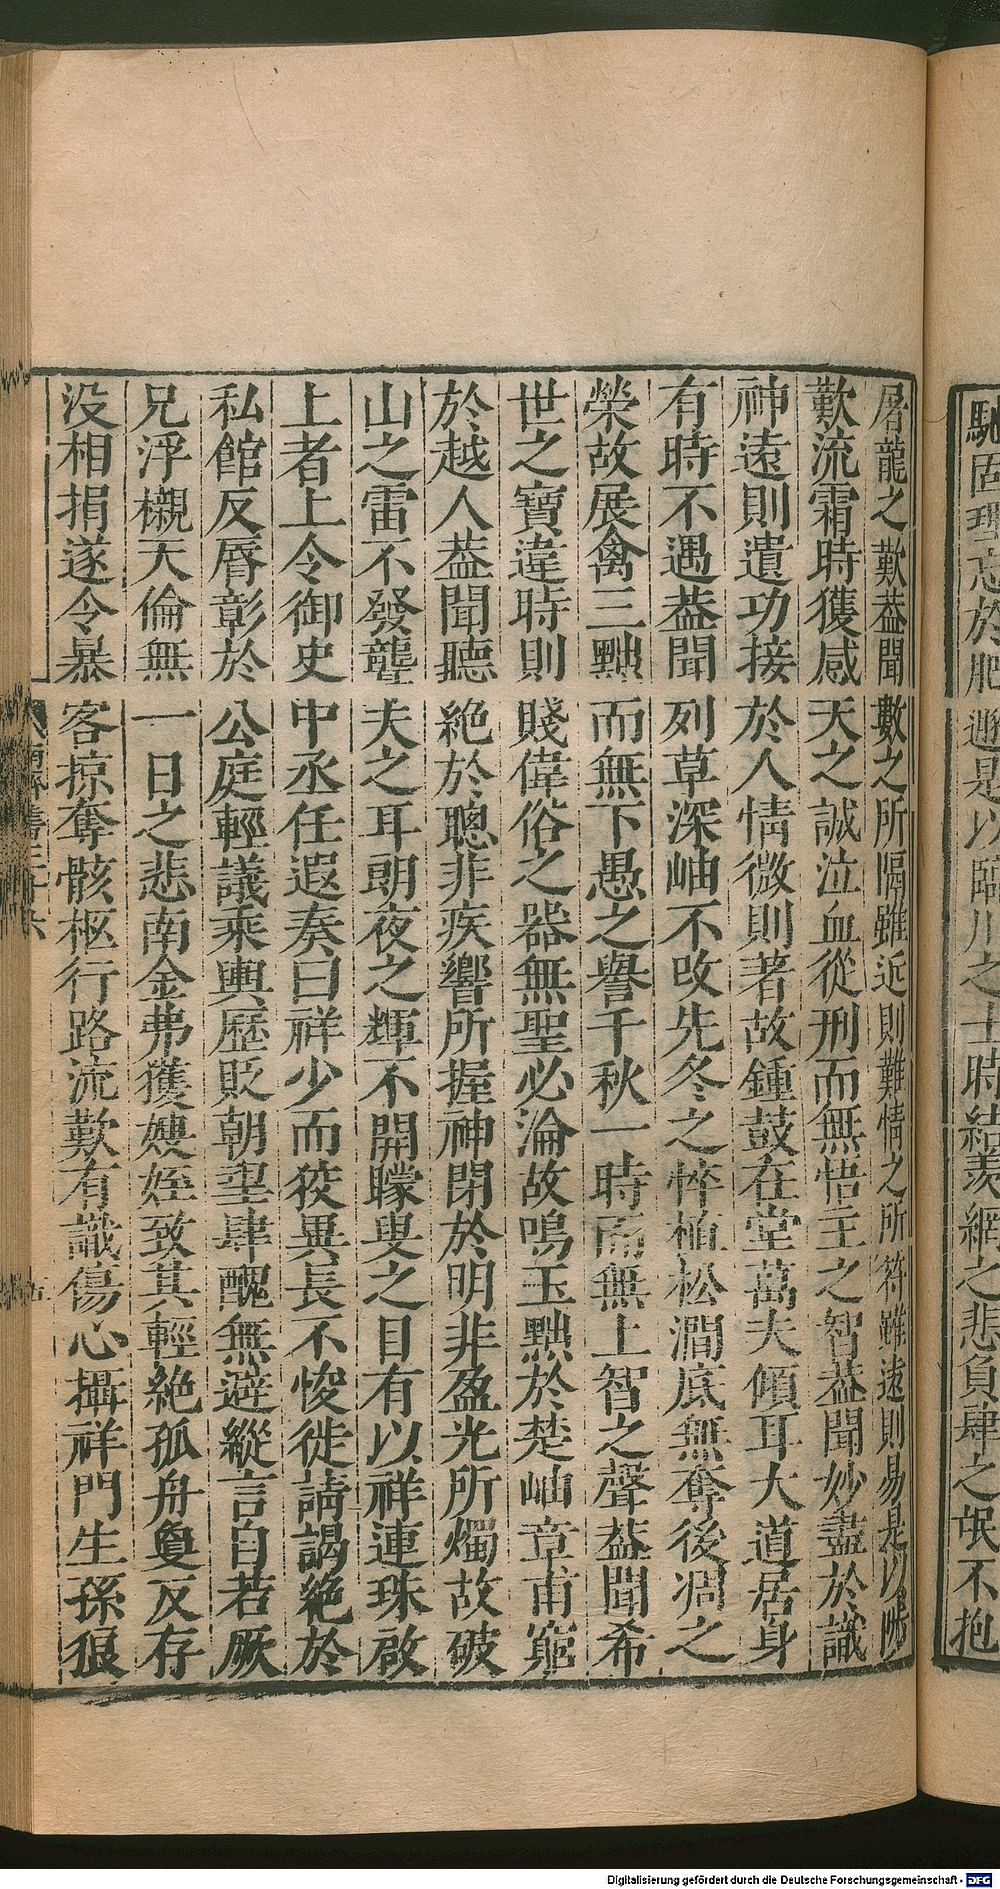 馳固理忘於肥遯是以臨川之士時結羨網之悲負肆之氓不抱
屠龍之歎蓋聞數之所隔雖近則難情之所符雖遠則易是以陟
歎流霜時獲感天之誠泣血從刑而無悟主之智蓋聞妙盡於識
神遠則遺功接於人情微則著故鍾鼓在堂萬夫傾耳大道居身
有時不遇蓋聞列草深岫不改先冬之悴植松澗底無奪後凋之
榮故展禽三黜而無下愚之譽千秋一時而無上智之聲蓋聞希
世之寶違時則賤偉俗之器無聖必淪故鳴玉黜於楚岫章甫窮
於越人蓋聞聽絕於聰非疾響所握神閉於明非盈光所燭故破
山之雷不發聾夫之耳朗夜之輝不開矇叟之目有以祥連珠啟
上者上令御史中丞任遐奏曰祥少而狡異長不悛徙請謁絕於
私館反脣彰於公庭輕議乘輿歷貶朝望肆醜無避縱言自若厥
兄浮櫬天倫無一日之悲南金弗獲嫂姪致其輕絕孤舟夐反存
没相捐遂令暴客掠奪骸柩行路流歎有識傷心攝祥門生孫狼
南齊書三十六
五
Digitalisierung gefördert durch die Deutsche Forschungsgemeinschaft - DFG